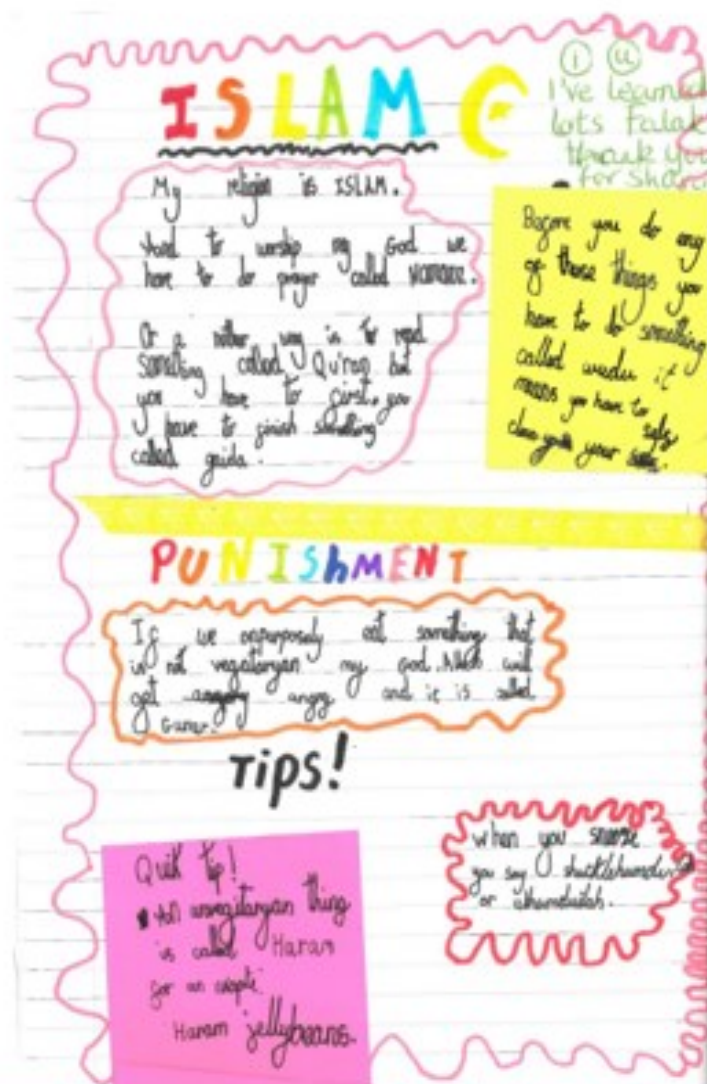 ISLAM
i u
I've learned
lots Falak
thank you
for sharing
My religion is ISLAM.
And to worship my God we
have to do prayer called NAMAZ.
Or a nother way is to read
something called Qu'ran but
you have to first. you
have to finish something
called gaida.
Before you do any
of those things you
have to do something
called wudu it
means you have to
clean your
PUNIShMENT
If we onpurposely eat something that
is not vegataryan my god. Allah will
get angry and it is called
Guner.
Tips!
Quik tip!
unvegitaryan thing
is called Haram
for an
Haram jellybeans.
when you sneeze
you say
or